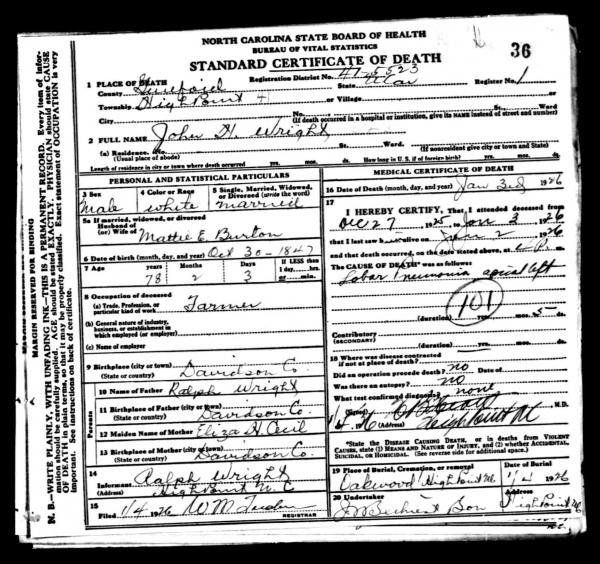 NORTH CAROLINA STATE BOARD OF HEALTH
BUREAU OF VITAL STATISTICS
STANDARD CERTIFICATE OF DEATH
36
1 PLACE OF DEATH
Registration District No. 41-5523
Register No. 1
County Guilford
State
Township High Point
or Village
City
No.
St. Ward
(If death occurred in a hospital or institution, give its NAME instead of street and number)
2 FULL NAME John H. Wright
(a) Residence. No.
St. Ward.
(Usual place of abode)
(If nonresident give city or town and State)
Length of residence in city or town where death occurred yrs. mos. ds. How long in U. S. if of foreign birth? yrs. mos. ds.
PERSONAL AND STATISTICAL PARTICULARS
3 Sex
Male
4 Color or Race
white
5 Single, Married, Widowed, or Divorced (write the word)
married
5a If married, widowed, or divorced
Husband of
(or) Wife of Mattie E. Burton
6 Date of birth (month, day, and year) Oct 30 - 1847
7 Age
Years
Months
Days
If LESS than
1 day, hrs.
or min.
78
2
3
8 Occupation of deceased
(a) Trade, Profession, or particular kind of work Farmer
(b) General nature of industry, business, or establishment in which employed (or employer)
(c) Name of employer
9 Birthplace (city or town) Davidson Co.
(State or country)
Parents
10 Name of Father Ralph Wright
11 Birthplace of Father (city or town) Davidson Co.
(State or country)
12 Maiden Name of Mother Eliza H Cecil
13 Birthplace of Mother (city or town) Davidson Co.
(State or country)
14
Informant Ralph Wright
(Address) High Point N. C
15
Filed 1/4 1926 W M
REGISTRAR
MEDICAL CERTIFICATE OF DEATH
16 Date of Death (month, day, and year) Jan 3rd 1926
17
I HEREBY CERTIFY, That I attended deceased from
Dec 27 1925 to Jan 3 1926
that I last saw h alive on Jan 2 1926
and that death occurred, on the date stated above, at
The CAUSE OF DEATH* was as follows:
Lobar Pneumonia apical left
101
(duration) yrs. mos. 5 ds.
Contributory
(SECONDARY)
(duration) yrs. mos. ds.
18 Where was disease contracted
if not at place of death?
Did an operation precede death? no
Was there an autopsy? no
What test confirmed diagnosis? none
(Signed) M.D.
(Address) High Point NC
*State the DISEASE CAUSING DEATH, or in deaths from VIOLENT CAUSES, state (1) MEANS AND NATURE OF INJURY, and (2) whether ACCIDENTAL, SUICIDAL, or HOMICIDAL. (See reverse side for additional space.)
19 Place of Burial, Cremation, or removal
Date of Burial
Oakwood High Point NC
1/4 1926
20 Undertaker
Address
Sechrest Son
High Point NC
MARGIN RESERVED FOR BINDING
N. B.—WRITE PLAINLY, WITH UNFADING INK—THIS IS A PERMANENT RECORD. Every item of information should be carefully supplied. AGE should be stated EXACTLY. PHYSICIAN should state CAUSE OF DEATH in plain terms, so that it may be properly classified. Exact statement of OCCUPATION is very important. See instructions on back of certificate.